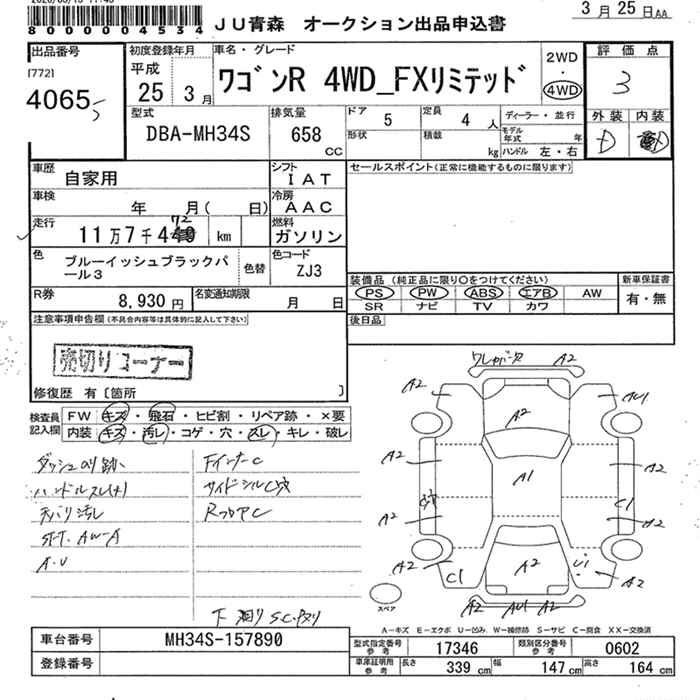 3月25日AA
8000004534 JU青森 オークション出品申込書
出品番号
[772]
4065
初度登録年月
平成
25 3月
車名・グレード
ワゴンR 4WD_FXリミテッド
2WD
・
4WD
評価点
3
外装 内装
D
型式
DBA-MH34S
排気量
658
CC
ドア 5
定員 4 人
ディーラー・並行
形状
積載 kg
モデル年式 年
ハンドル 左・右
車歴
自家用
シフト
IAT
セールスポイント(正常に機能するものに限ります)
車検
年 月( 日)
冷房
AAC
走行
72
11万7千4 km
燃料
ガソリン
色
ブルーイッシュブラックパール3
色替
色コード
ZJ3
装備品 (純正品に限り○をつけてください)
新車保証書
PS PW ABS エアB AW
有・無
SR ナビ TV カワ
R券
8,930円
名変通知期限
月 日
後日品
注意事項申告欄(不具合内容等は具体的に記入して下さい)
売切りコーナー
修復歴 有[箇所 ]
検査員記入欄
FW キズ・飛石・ヒビ割・リペア跡・×要
内装 キズ・汚レ・コゲ・穴・スレ・キレ・破レ
ダッシュのり跡
ハンドルスレ(大)
天バリ汚レ
A.U
FインナーC
サイドシルC穴
下廻りS.C.
A2
A2
A2
A2
A1
A2
A2
A2
C1
A2
A2
A2
C1
A2
U1
A2
A2 AU1 A2
スペア
A-キズ E-エクボ U-凹み W-補修跡 S-サビ C-腐食 XX-交換済
車台番号
MH34S-157890
型式指定番号参考
17346
類別区分番号参考
0602
登録番号
車庫証明用参考
長さ 339 cm
幅 147 cm
高さ 164 cm